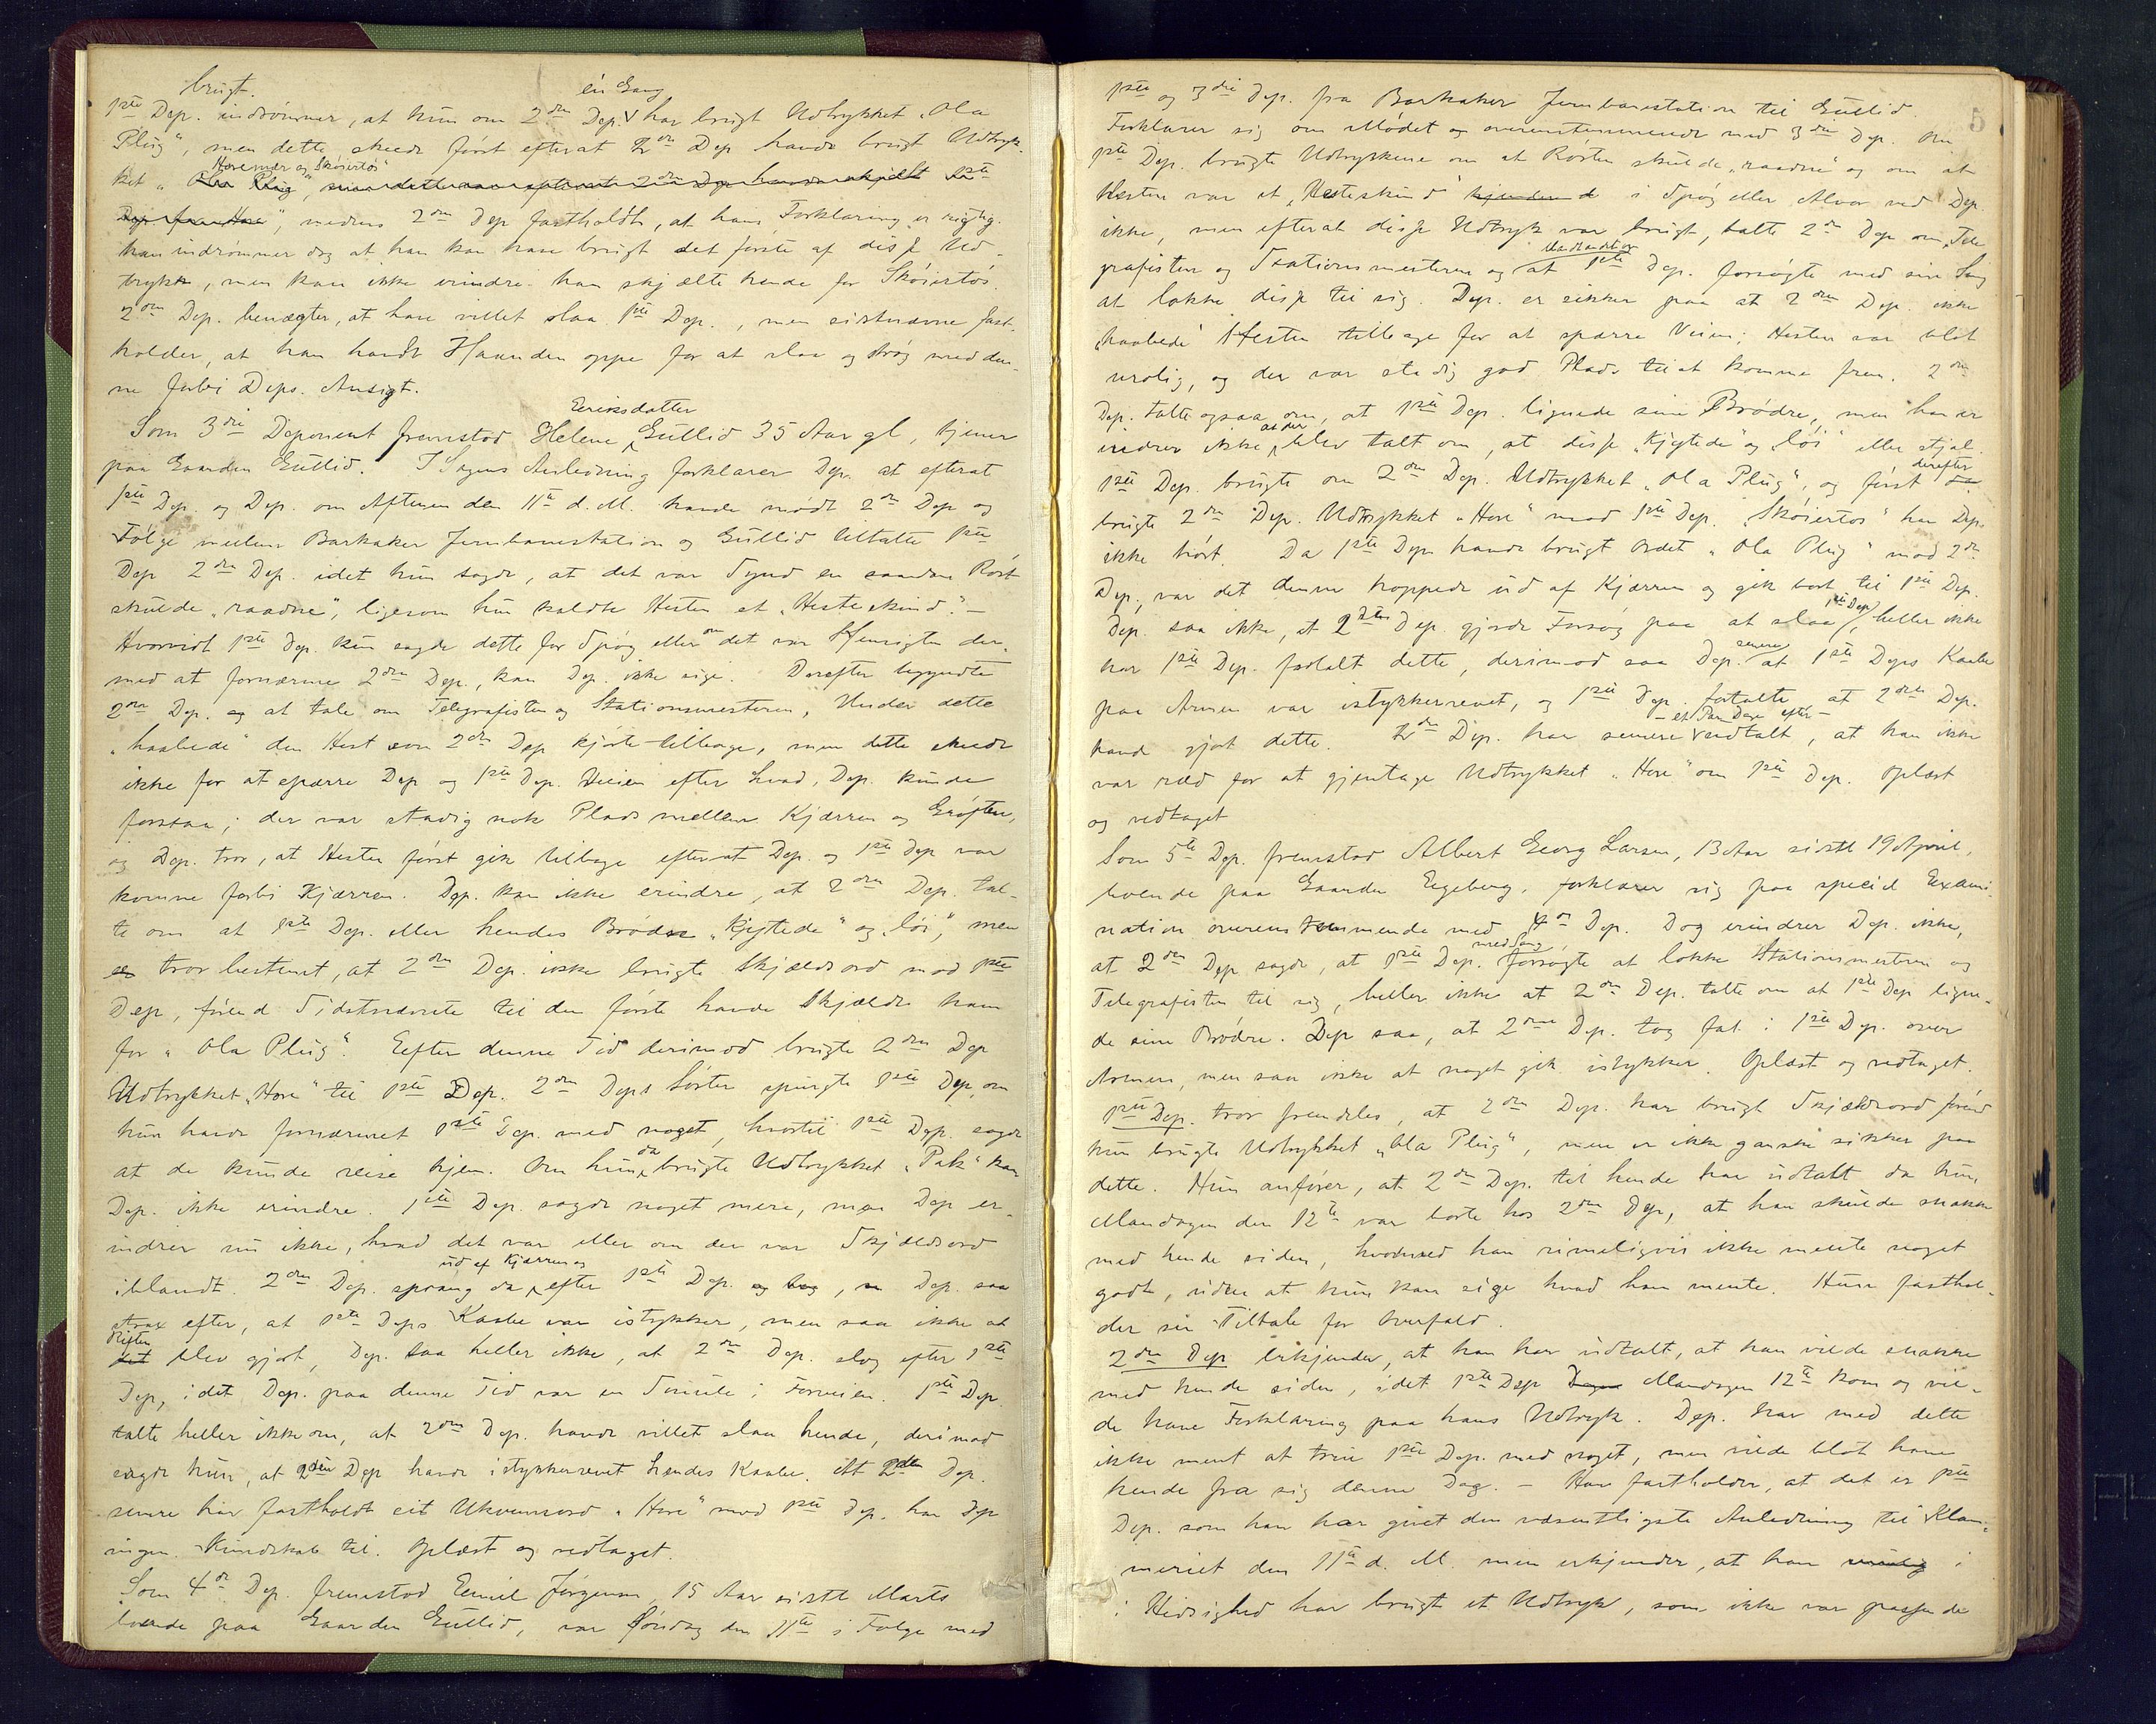 brugt.
én Gang
1ste Dep. indrømmer, at hun om 2den Dep. har brugt Udtrykket „Ola
Plug“, men dette skede først efterat 2den Dep havde brugt Udtryk-
Horemær og Skøiertøs
ket „Ola Plug“, men dette var efterat 2den Dep havde skjældt 1ste
Dep. for Hore“, medens 2den Dep fastholdt, at hans Forklaring er rigtig.
han indrømmer dog at han kan have brugt det første af disse Ud-
tryk, men kan ikke erindre han skjældte hende for Skøiertøs.
2den Dep. benægter, at have villet slaa 1ste Dep., men sidstnævne fast-
holder, at han havde Haanden oppe for at slaa og strøg med den-
ne forbi Deps. Ansigt.
Eeriksdatter
Som 3die Deponent fremstod Helene Gullid 35 Aar gl, tjener
paa Gaarden Gullid. I Sagens Anledning forklarer Dep. at efterat
1ste Dep. og Dep. om Aftenen den 11te d. M. havde mødt 2den Dep og
Følge mellem Barkaker Jernbanestation og Gullid tiltalte 1ste
Dep 2den Dep. idet hun sagde, at det var Synd en saadan Røst
skulde „raadne“, ligesom hun kaldte Hesten et „Hesteskind“. –
Hvorvidt 1ste Dep. kun sagde dette for Spøg eller om det var Hensigten der-
med at fornærme 2den Dep., kan Dep. ikke sige. Derefter begyndte
2den Dep. og at tale om Telegrafisten og Stationsmesteren, Under dette
„haabede“ den Hest som 2den Dep kjørte tilbage, men dette skede
ikke for at spærre Dep og 1ste Dep. Veien efter hvad, Dep. kunde
forstaa; der var stadig nok Plads mellem Kjærren og Grøften,
og Dep. tror, at Hesten først gik tilbage efterat Dep. og 1ste Dep var
komne forbi Kjærren. Dep. kan ikke erindre, at 2den Dep. tal-
te om at 1ste Dep. eller hendes Brødre „kjytede“ og „løi“, men
tror bestemt, at 2den Dep. ikke brugte Skjældsord mod 1ste
Dep, førend Sidstnævnte til den første havde Skjældt ham
for „Ola Plug“. Eefter denne Tid derimod brugte 2den Dep
Udtrykket „Hore“ til 1ste Dep. 2den Deps Søster spurgte 1ste Dep, om
hun havde fornærmet 1ste Dep. med noget, hvortil 1ste Dep. sagde
da
at de kunde reise hjem. Om hun brugte Udtrykket „Pak“ kan
Dep. ikke erindre. 1ste Dep. sagde noget mere, men Dep er-
indrer nu ikke, hvad det var eller om der var Skjældsord
ud af Kjærren og
iblandt. 2den Dep. sprang da efter 1ste Dep. og tog, Dep. saa
strax efter, at 1ste Deps Kaabe var istykker, men saa ikke at
Riften
det blev gjort, Dep. saa heller ikke, at 2den Dep. slog efter 1ste
Dep, idet Dep. paa denne Tid var en Smule i Forveien. 1ste Dep
talte heller ikke om, at 2den Dep. havde villet slaa hende, derimod
sagde hun, at 2den Dep havde istykkerrevet hendes Kaabe. At 2den Dep.
senere har fastholdt sit Ukvemsord „Hore“ mod 1ste Dep. har Dep
ingen Kundskab til. Oplæst og vedtaget.
Som 4de Dep. fremstod Eemil Jørgensen 15 Aar sidstl Marts
boende paa Gaarden Gullid, var Søndag den 11te i Følge med
5
1ste og 3die Dep. fra Barkaker Jernbanestation til Gullid.
Forklarer sig om Mødet og overensstemmende med 3die Dep. Om
1ste Dep. brugte Udtrykkene om at Røsten skulde „raadne“ og om at
Hesten var et „Hesteskind“ i Spøg eller Alvor ved Dep.
ikke, men efterat disse Udtryk var brugt, talte 2den Dep om Tele-
grafisten og Stationsmesteren og at 1ste Dep. forsøgte med sin Sang
at lokke disse til sig. Dep. er sikker paa at 2den Dep. ikke
„haabede“ Hesten tilbage for at spærre Veien; Hesten var blot
urolig, og der var stadig god Plads til at komme frem. 2den
Dep. talte ogsaa om, at 1ste Dep. lignede sine Brødre, men han er
at der
indrer ikke blev talt om, at disse „kjytede“ og „løi“ eller stjal.
derefter
1ste Dep. brugte om 2den Dep. Udtrykket „Ola Plug“, og først da
brugte 2den Dep. Udtrykket „Hore“ mod 1ste Dep. „Skøiertøs“ har Dep.
ikke hørt. Da 1ste Dep. havde brugt Ordet „Ola Plug“ mod 2den
Dep., var det denne hoppede ud af Kjærren og gik bort til 1ste Dep.
1ste Dep
Dep. saa ikke, at 2den Dep. gjorde Forsøg paa at slaa, heller ikke
senere
har 1ste Dep. fortalt dette, derimod saa Dep. at 1ste Deps Kaabe
paa Armen var istykkerrevet, og 1ste Dep. fortalte at 2den Dep.
– et Par Dage efter –
havde gjort dette. 2den Dep. har senere udtalt, at han ikke
var ræd for at gjentage Udtrykket „Hore“ om 1ste Dep. Oplæst
og vedtaget
Som 5te Dep. fremstod Albert Georg Larsen, 13 Aar sidstl 19 April,
boende paa Gaarden Eegeberg, forklarer sig paa speciel Exami-
nation overensstemmende med 4de Dep. Dog erindrer Dep. ikke,
med Sang
at 2den Dep. sagde, at 1ste Dep. forsøgte at lokke Stationsmesteren og
Telegrafisten til sig, heller ikke at 2den Dep. talte om at 1ste Dep ligne-
de sine Brødre. Dep saa, at 2den Dep. tog fat i 1ste Dep. over
Armen, men saa ikke at noget gik istykker. Oplæst og vedtaget.
1ste Dep. tror fremdeles, at 2den Dep. har brugt Skjældsord førend
hun brugte Udtrykket „Ola Plug“, men er ikke ganske sikker paa
dette. Hun anfører, at 2den Dep. til hende har udtalt da hun
Mandagen den 12te var borte hos 2den Dep, at han skulde snakke
med hende siden, hvormed han rimeligvis ikke mente noget
godt, uden at hun kan sige hvad han mente. Hun fasthol-
der sin Tiltale for Overfald.
2den Dep erkjender, at han har udtalt, at han vilde snakke
med hende siden, idet 1ste Dep Dagen Mandagen 12te kom og vil-
de have Forklaring paa hans Udtryk. Dep. har med dette
ikke ment at true 1ste Dep. med noget, men vilde blot have
hende fra sig denne Dag. – Han fastholder, at det er 1ste
Dep. som han har givet den væsentligste Anledning til Klam-
meriet den 11te d. M. men erkjender, at han i
i Hidsighed har brugt et Udtryk, som ikke var passende